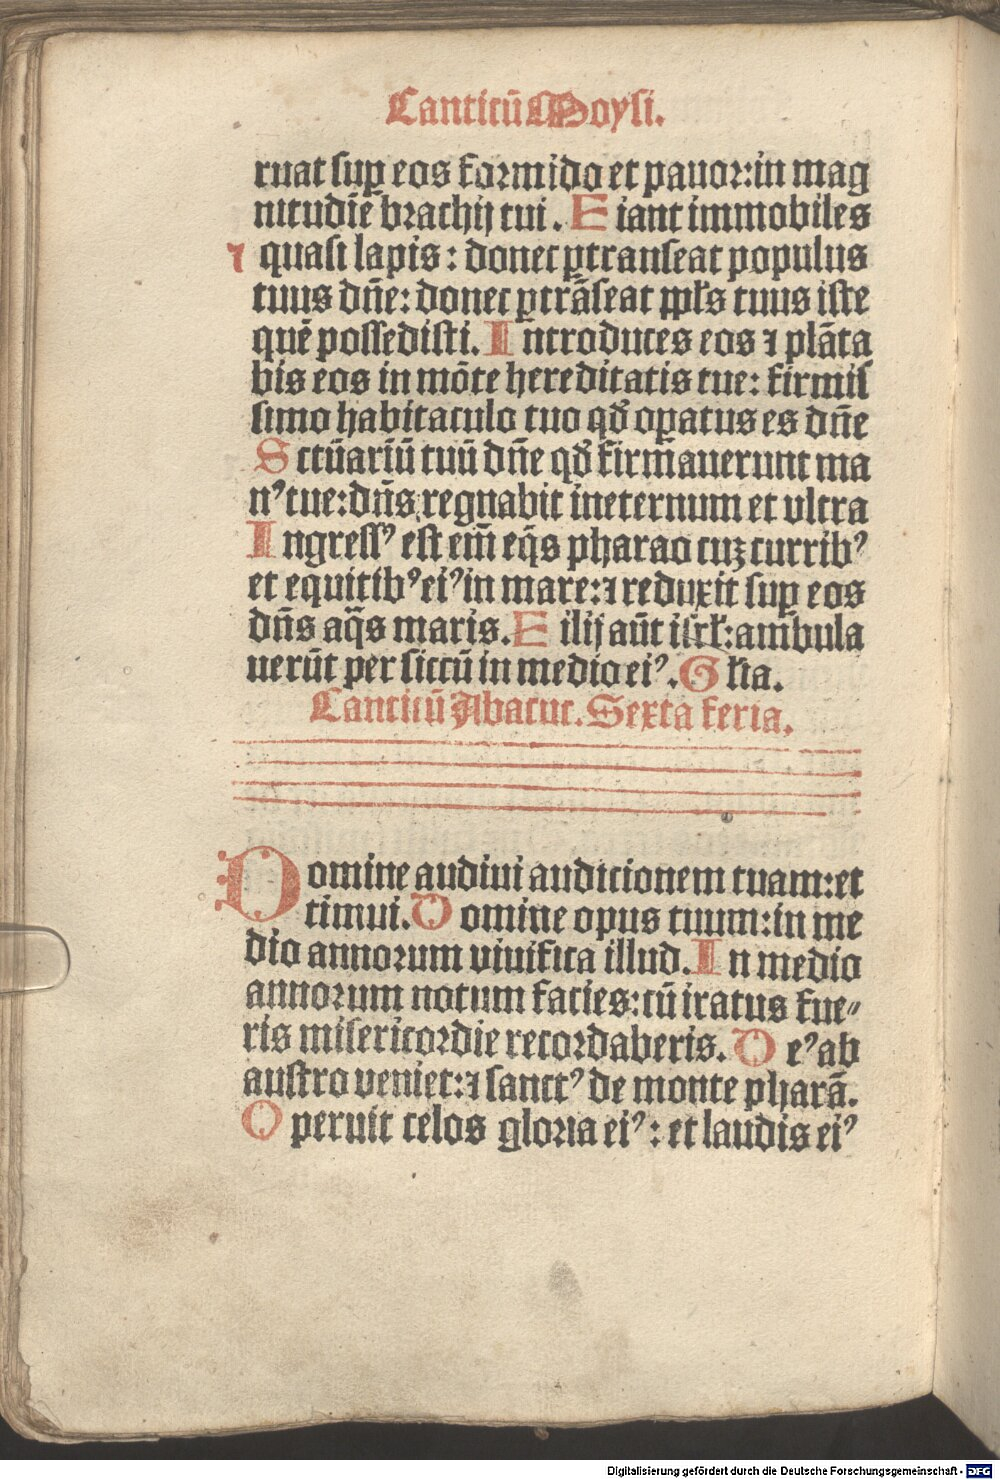 Canticū Moysi.
ruat suꝑ eos formido et pauor:in mag
nitudīe brachij tui. F iant immobiles
⁊ quasi lapis: donec ꝑtranseat populus
tuus dn̄e: donec ꝑtrāseat ppl's tuus iste
quē possedisti. I ntroduces eos ⁊ plāta
bis eos in mōte hereditatis tue: firmis
simo habitaculo tuo qd̓ oꝑatus es dn̄e
S ctūariū tuū dn̄e qd̓ firmauerunt ma
nꝰ tue:dn̄s regnabit ineternum et vltra
I ngressꝰ est em̄ eq̄s pharao cuꝫ curribꝰ
et equitibꝰ eiꝰ in mare:⁊ reduxit suꝑ eos
dn̄s aq̄s maris. F ilij aūt isrl':ambula
uerūt per siccū in medio eiꝰ. G l'ia.
Canticū Abacuc. Sexta feria.
D omine audiui audicionem tuam:et
timui. D omine opus tuum:in me
dio annorum viuifica illud. I n medio
annorum notum facies:cū iratus fue⸗
ris misericordie recordaberis. D eꝰ ab
austro veniet:⁊ sanctꝰ de monte pharā.
O peruit celos gloria eiꝰ: et laudis eiꝰ
Digitalisierung gefördert durch die Deutsche Forschungsgemeinschaft - DFG